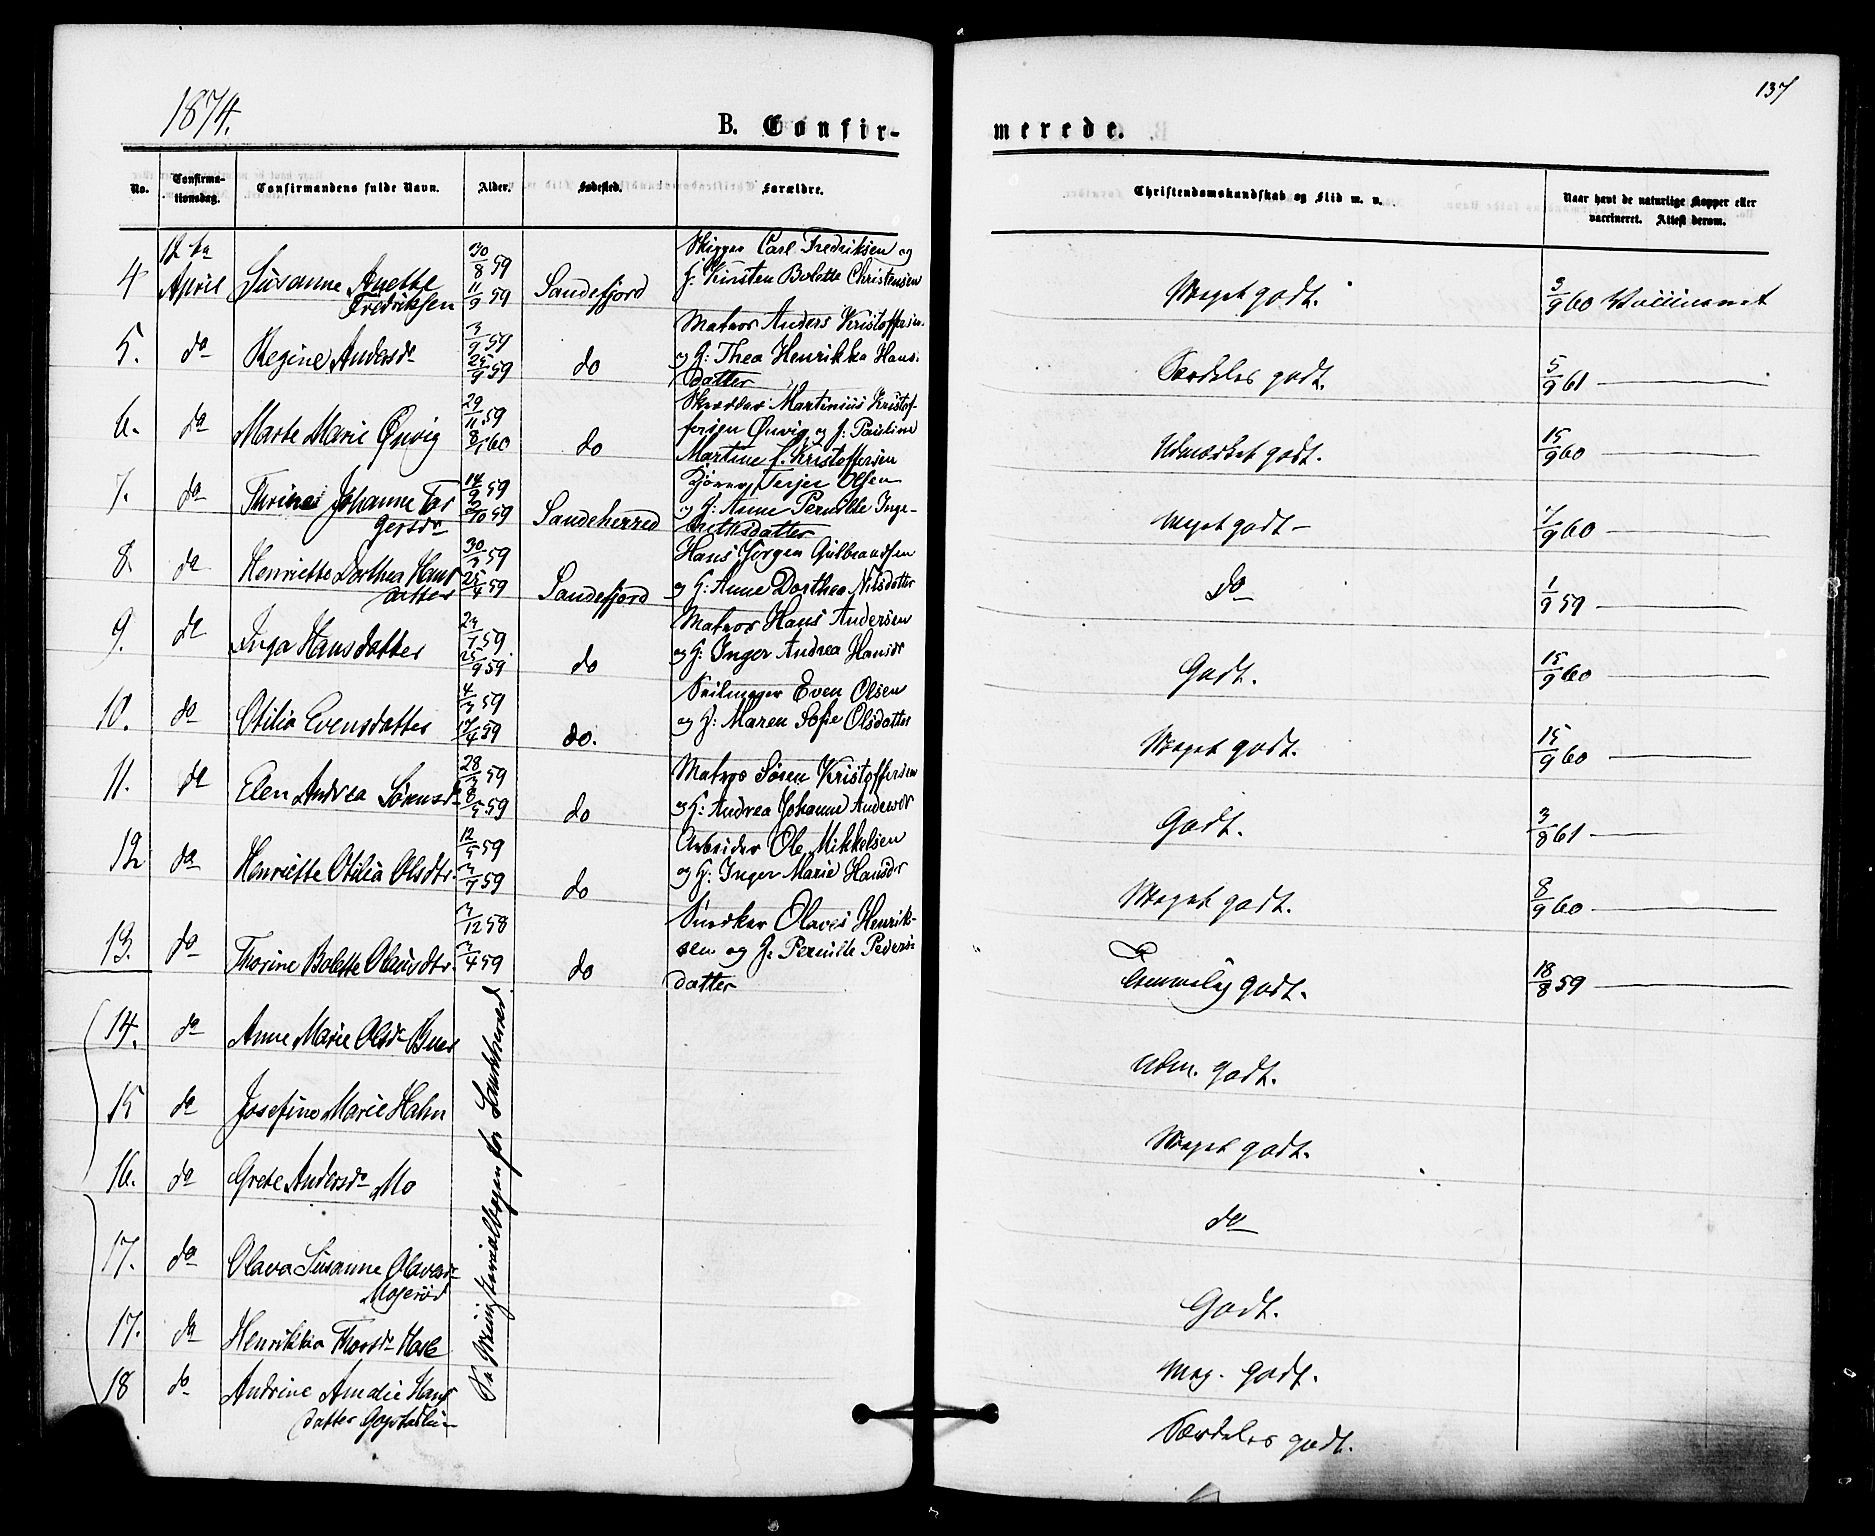 1874.
137
B. Confir-
merede.
No.
Confirma-
tionsdag.
Confirmandens fulde Navn.
Alder.
Fødested.
Forældre.
Christendomskundskab og Flid m. v.
Naar havt de naturlige Kopper eller
vaccineret. Attest derom.
12te
4 April Susanne Anette
Fredriksen
30/8 59
11/9 59
Sandefjord
Skipper Carl Fredriksen og
H: Kirsten Bolette Christensen
Meget godt.
3/9 60 Vaccineret
5. do Regine Andersdr
3/9 59
25/9 59
do
Matros Anders Kristoffersen
og H: Thea Henrikka Hans-
datter
Særdeles godt.
5/9 61
6. do Marte Marie Ønvig
29/11 59
8/1 60
do
Skrædder Martinius Kristof-
fersen Ønvig og H: Pauline
Martine f. Kristoffersen
Udmærket godt.
15/9 60
7. do Thrine Johanne Tor
gersdr
14/9 59
2/10 59
Sandeherred
Terjer Olsen
og H: Anne Pernille Inge-
bretsdatter
Meget godt
7/9 60
8. do Henriette Dorthea Hans
datter
30/3 59
25/4 59
Sandefjord
Hans Jørgen Gulbrandsen
og H: Anne Dorthea Nilsdatter
do
1/9 59
9. do Inga Hansdatter
59
25/9 59
do
Matros Hans Andersen
og H: Inger Andrea Hansdr
Godt.
15/9 60
10. do Otilia Evensdatter
4/3 59
17/4 59
do.
Seilmager Even Olsen
og H: Maren Sofie Olsdatter
Meget godt.
15/9 60
11. do Elen Andrea Sørensdr
28/3 59
8/5 59
do
Matros Søren Kristoffersen
og H: Andrea Johanne Andersdr
Godt.
3/8 61
12 do Henriette Otilia Olsdtr.
12/5 59
3/7 59
do
Arbeider Ole Mikkelsen
og H: Inger Marie Hansdr
Meget godt.
8/9 60
13. do Thorine Bolette Olausdtr.
3/12 58
3/4 59
do
Snedker Olaves Henrik-
sen og H: Pernille Peders-
datter
Temmelig godt.
18/8 59
14. do Anne Marie Olsdr
Udm. godt.
15 do Josefine Marie Hahn
Meget godt.
16. do Grete Andersdr Mo
do
17. do Olava Susanne Olavesdr
Mogerød
Godt.
17. do Henrikka Thorsdr Hasle
Meg. godt.
18 do Andrine Amalie Hans
datter
Særdeles godt.
Se Ministerialbogen for Sandeherred